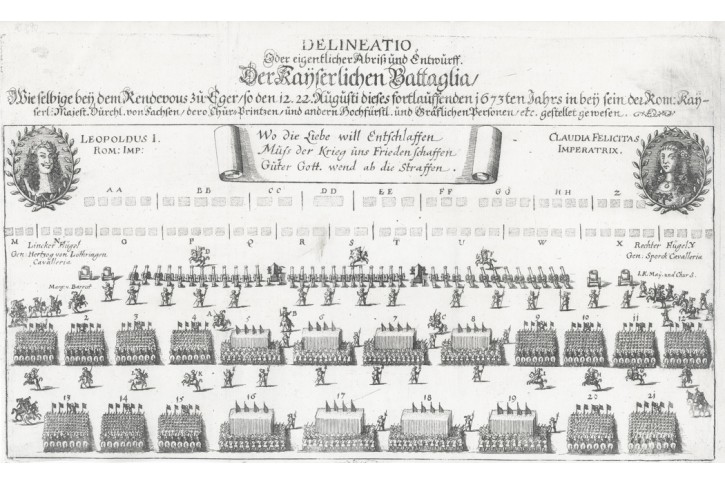 DELINEATIO,
Oder eigentlicher Abriß und Entwürff.
Der Kaÿserlichen Battaglia/
Wie selbige beÿ dem Rendevous zu Eger/ so den 12. 22. Augusti dieses fortlauffenden 1673ten Jahrs in beÿ sein der Rom: Kaÿ-
serl: Majest: Dürchl. von Sachsen/ dero Chür-Printzen/ und andern Hochfürstl. und Gräflichen Personen/ etc. gestellet gewesen.
LEOPOLDUS I.
ROM: IMP:
Wo Die Liebe will Entschlaffen
Müß der Krieg üns Frieden schaffen
Güter Gott. wend ab die Straffen.
CLAUDIA FELICITAS
IMPERATRIX.
AA BB CC DD EE FF GG HH Z
M N O P Q R S T U W X Y
Lincker Flügel
Gen: Hertzog von Lothringen
Cavalleria
Rechter Flügel
Gen: Sporck Cavalleria
I.K. Maj: und Chur S.
1 2 3 4 5 6 7 8 9 10 11 12
13 14 15 16 17 18 19 20 21